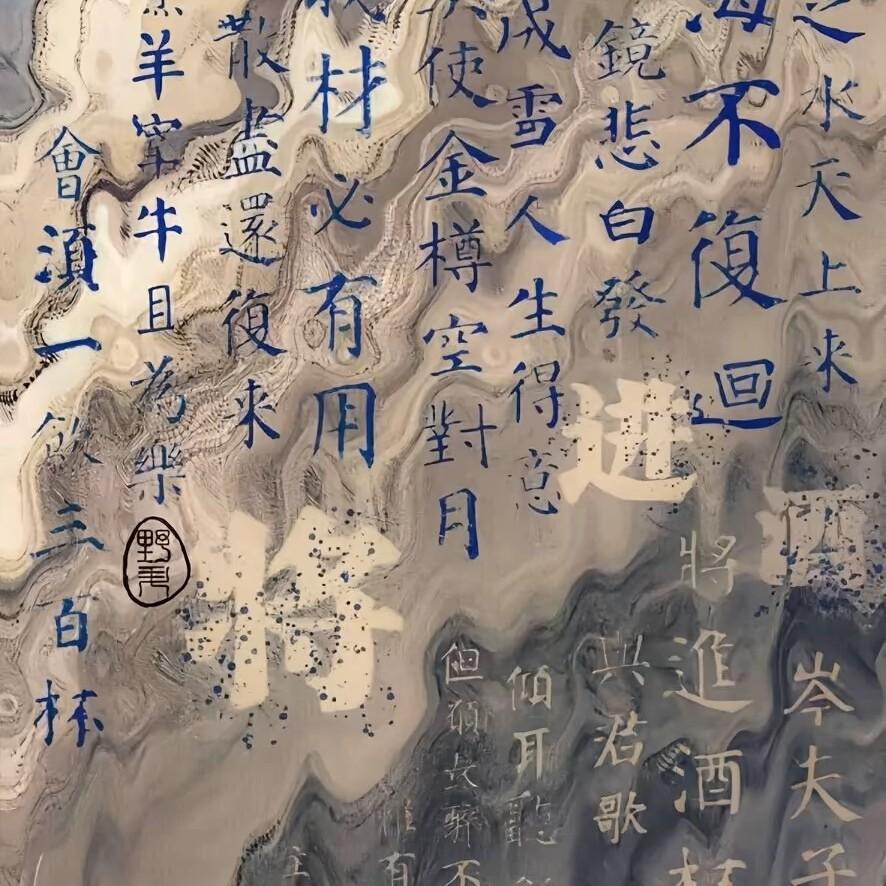 之水天上来
海不復回
鏡悲白發
成雪人生得意
使金樽空對月
材必有用
散盡還復來
羊宰牛且為樂
會須一飲三百杯
将进酒
岑夫子
將進酒杯
與君歌
傾耳聽
但願長醉不
惟有
主